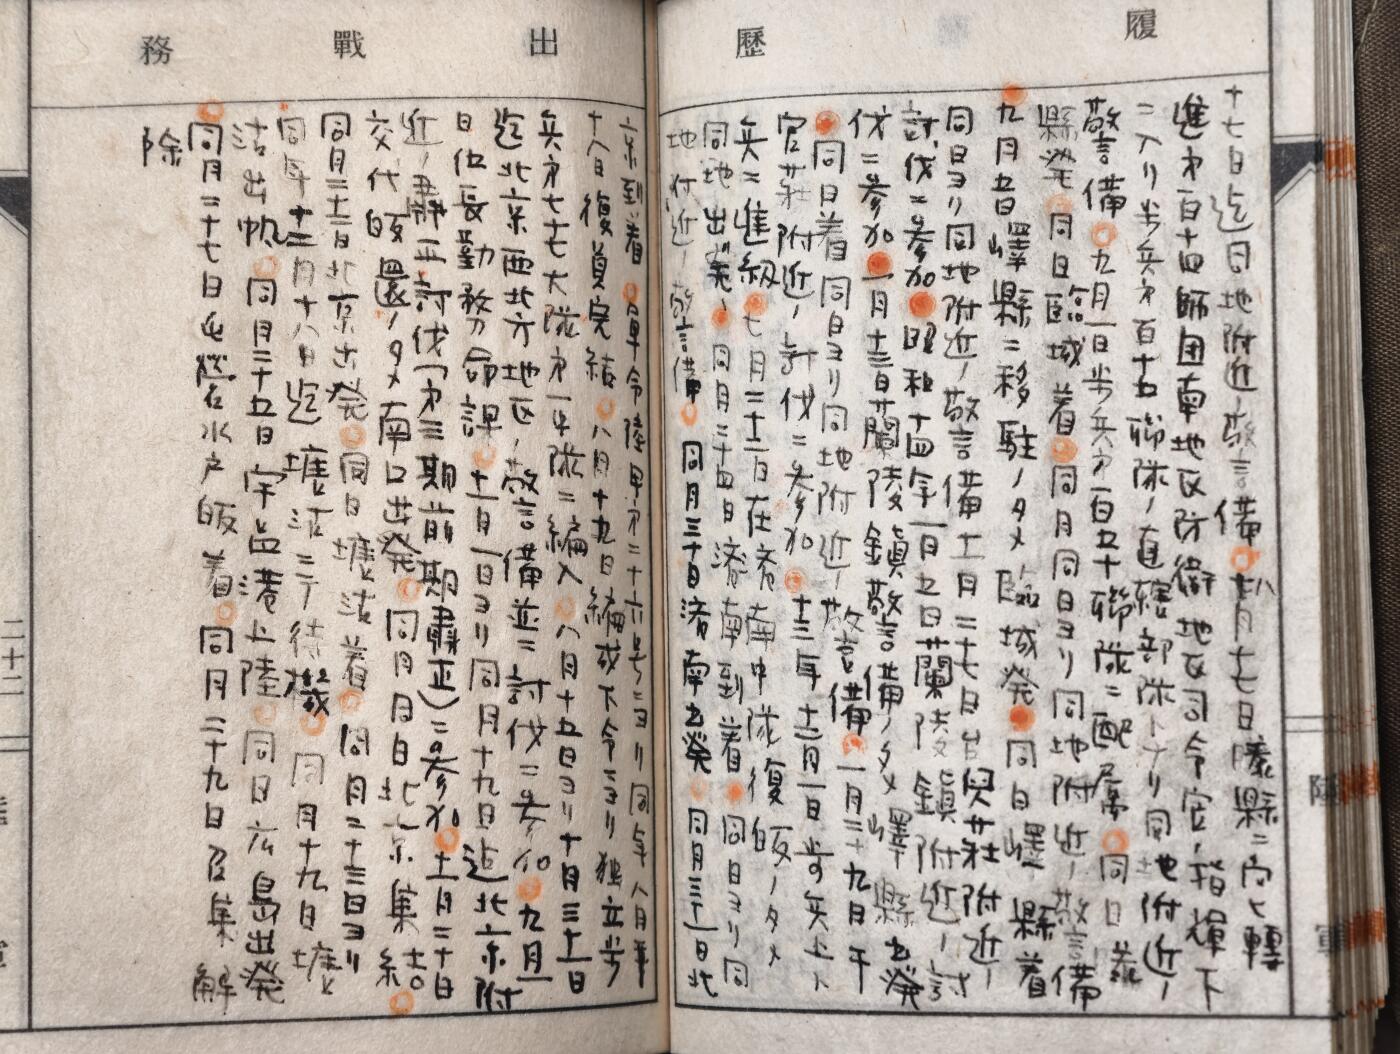 履歷
十七日迄同地附近ノ警備○八月十七日滕縣ニ向ヒ轉
進第百十四師団南地区防衛地区司令官ノ指揮下
ニ入リ歩兵第百十五聯隊ノ直轄部隊トナリ同地附近ノ
警備○九月一日歩兵第百五十聯隊ニ配属○同日
縣発○同日臨城着○同月同日ヨリ同地附近ノ警備
九月五日嶧縣ニ移駐ノタメ臨城発○同日嶧縣着
同日ヨリ同地附近ノ警備十一月二十七日台兒荘附近ノ討
討伐ニ参加○昭和十四年一月五日蘭陵鎮附近ノ討
伐ニ参加○一月十三日蘭陵鎮警備ノタメ嶧縣出発
○同日着同日ヨリ同地附近ノ警備○一月二十九日干
官荘附近ノ討伐ニ参加○十三年十二月一日歩兵上ト
兵ニ進級○七月二十一日在済南中隊復帰ノタメ
同地出発○同月二十四日済南到着○同日ヨリ同
地附近ノ警備○同月三十日済南出発○同月三十一日北
出戰務
京到着○軍令陸甲第二十六号ニヨリ同年八月
十八日復員完結○八月十九日編成下令ニヨリ独立歩
兵第七十七大隊第一中隊ニ編入○八月十五日ヨリ十月三十一日
迄北京西北方地区ノ警備並ニ討伐ニ参加○九月一
日伍長勤務命課○十一月一日ヨリ同月十九日迄北京附
近ノ粛正討伐(第三期前期粛正)ニ参加○十一月二十日
交代帰還ノタメ南口出発○同月同日北京集結○
同月二十二日北京出発○同日塘沽着○同月二十三日ヨリ
同年十二月十八日迄塘沽ニテ待機○同月十九日塘
沽出帆○同月二十五日宇品港上陸○同日広島出発
○同月二十七日屯営水戸帰着○同月二十九日召集解
除
二十二
陸軍